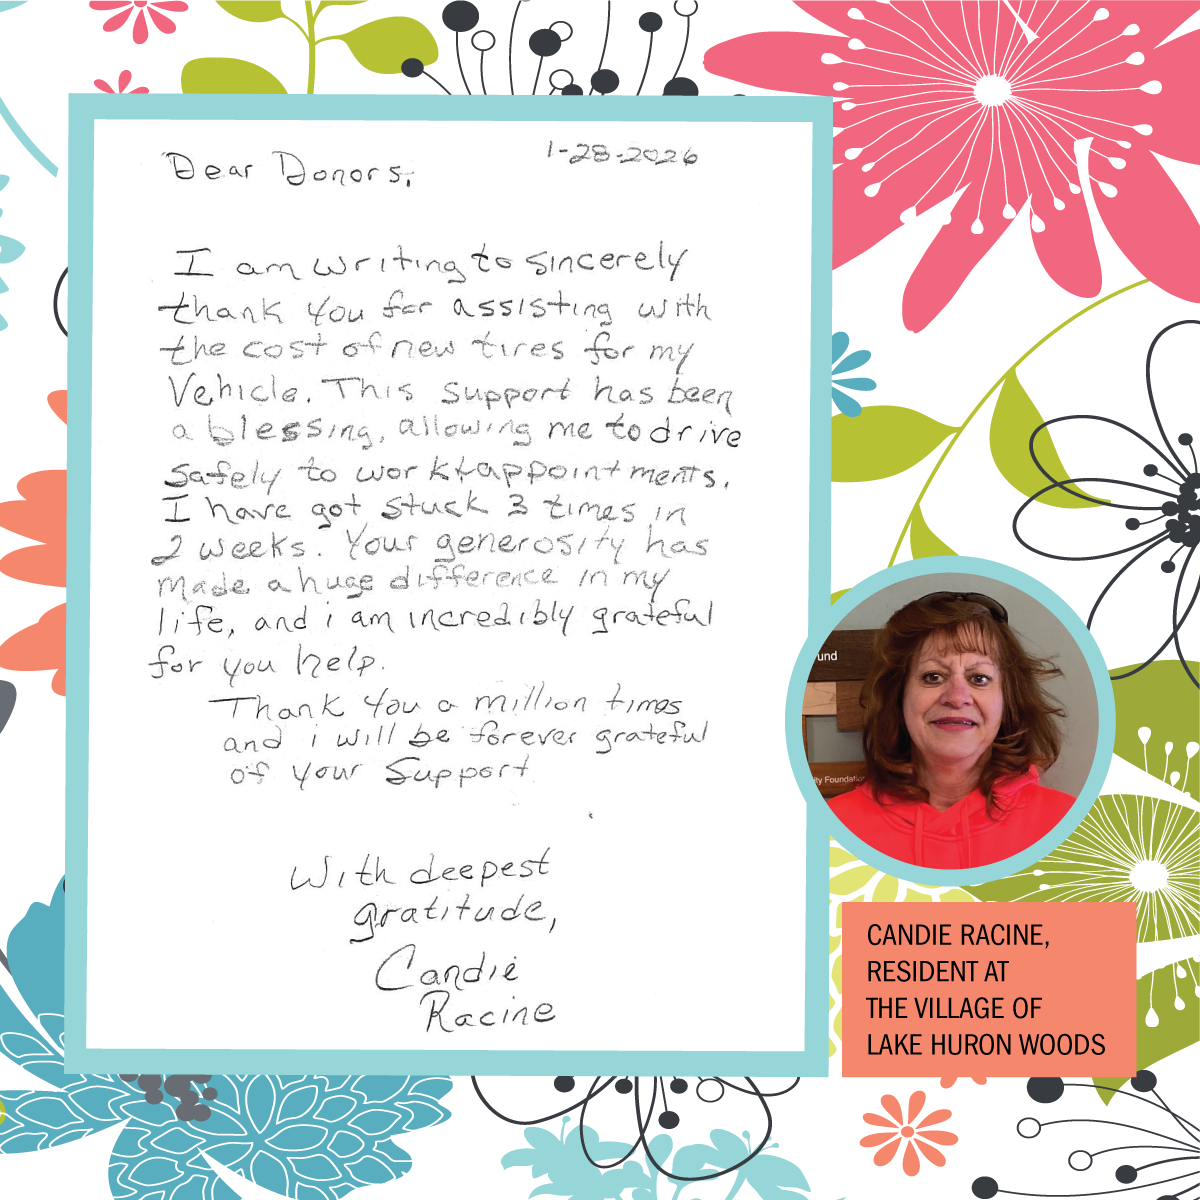 1-28-2026
Dear Donors,
I am writing to sincerely
thank you for assisting with
the cost of new tires for my
Vehicle. This support has been
a blessing, allowing me to drive
safely to work + appointments.
I have got stuck 3 times in
2 weeks. Your generosity has
made a huge difference in my
life, and i am incredibly grateful
for you help.
Thank you a million times
and i will be forever grateful
of your Support
With deepest
gratitude,
Candie
Racine
und
ity Foundation
CANDIE RACINE,
RESIDENT AT
THE VILLAGE OF
LAKE HURON WOODS